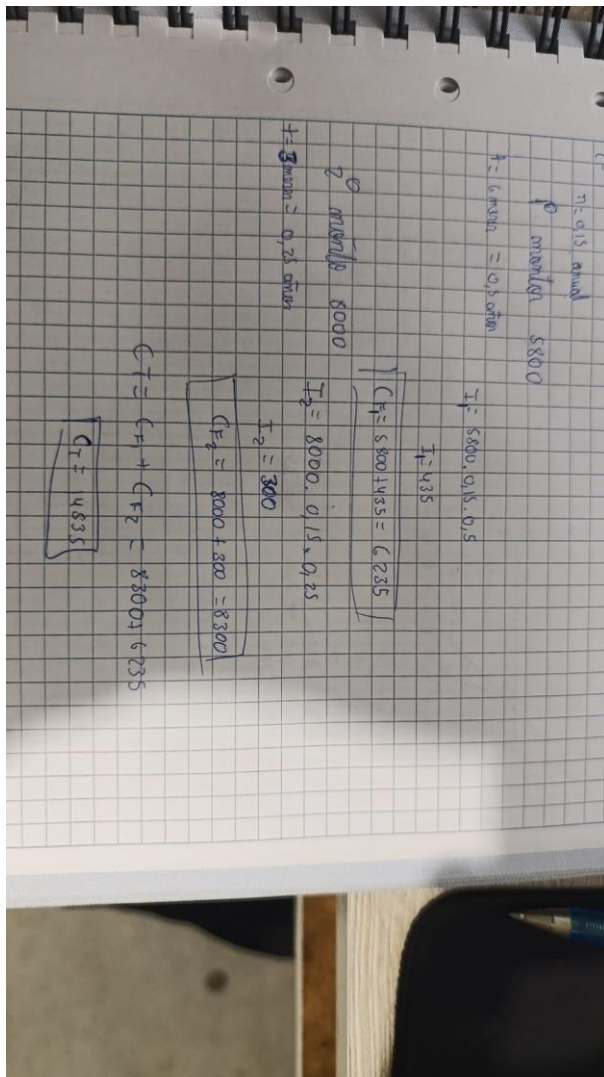 n = 0,15 anual
1º monto 5800
t = 6 meses = 0,5 años
I1 = 5800 . 0,15 . 0,5
I1 = 435
CF1 = 5800 + 435 = 6235
2º monto 8000
t = 3 meses = 0,25 años
I2 = 8000 . 0,15 x 0,25
I2 = 300
CF2 = 8000 + 300 = 8300
CT = CF1 + CF2 = 8300 + 6235
CT = 4835